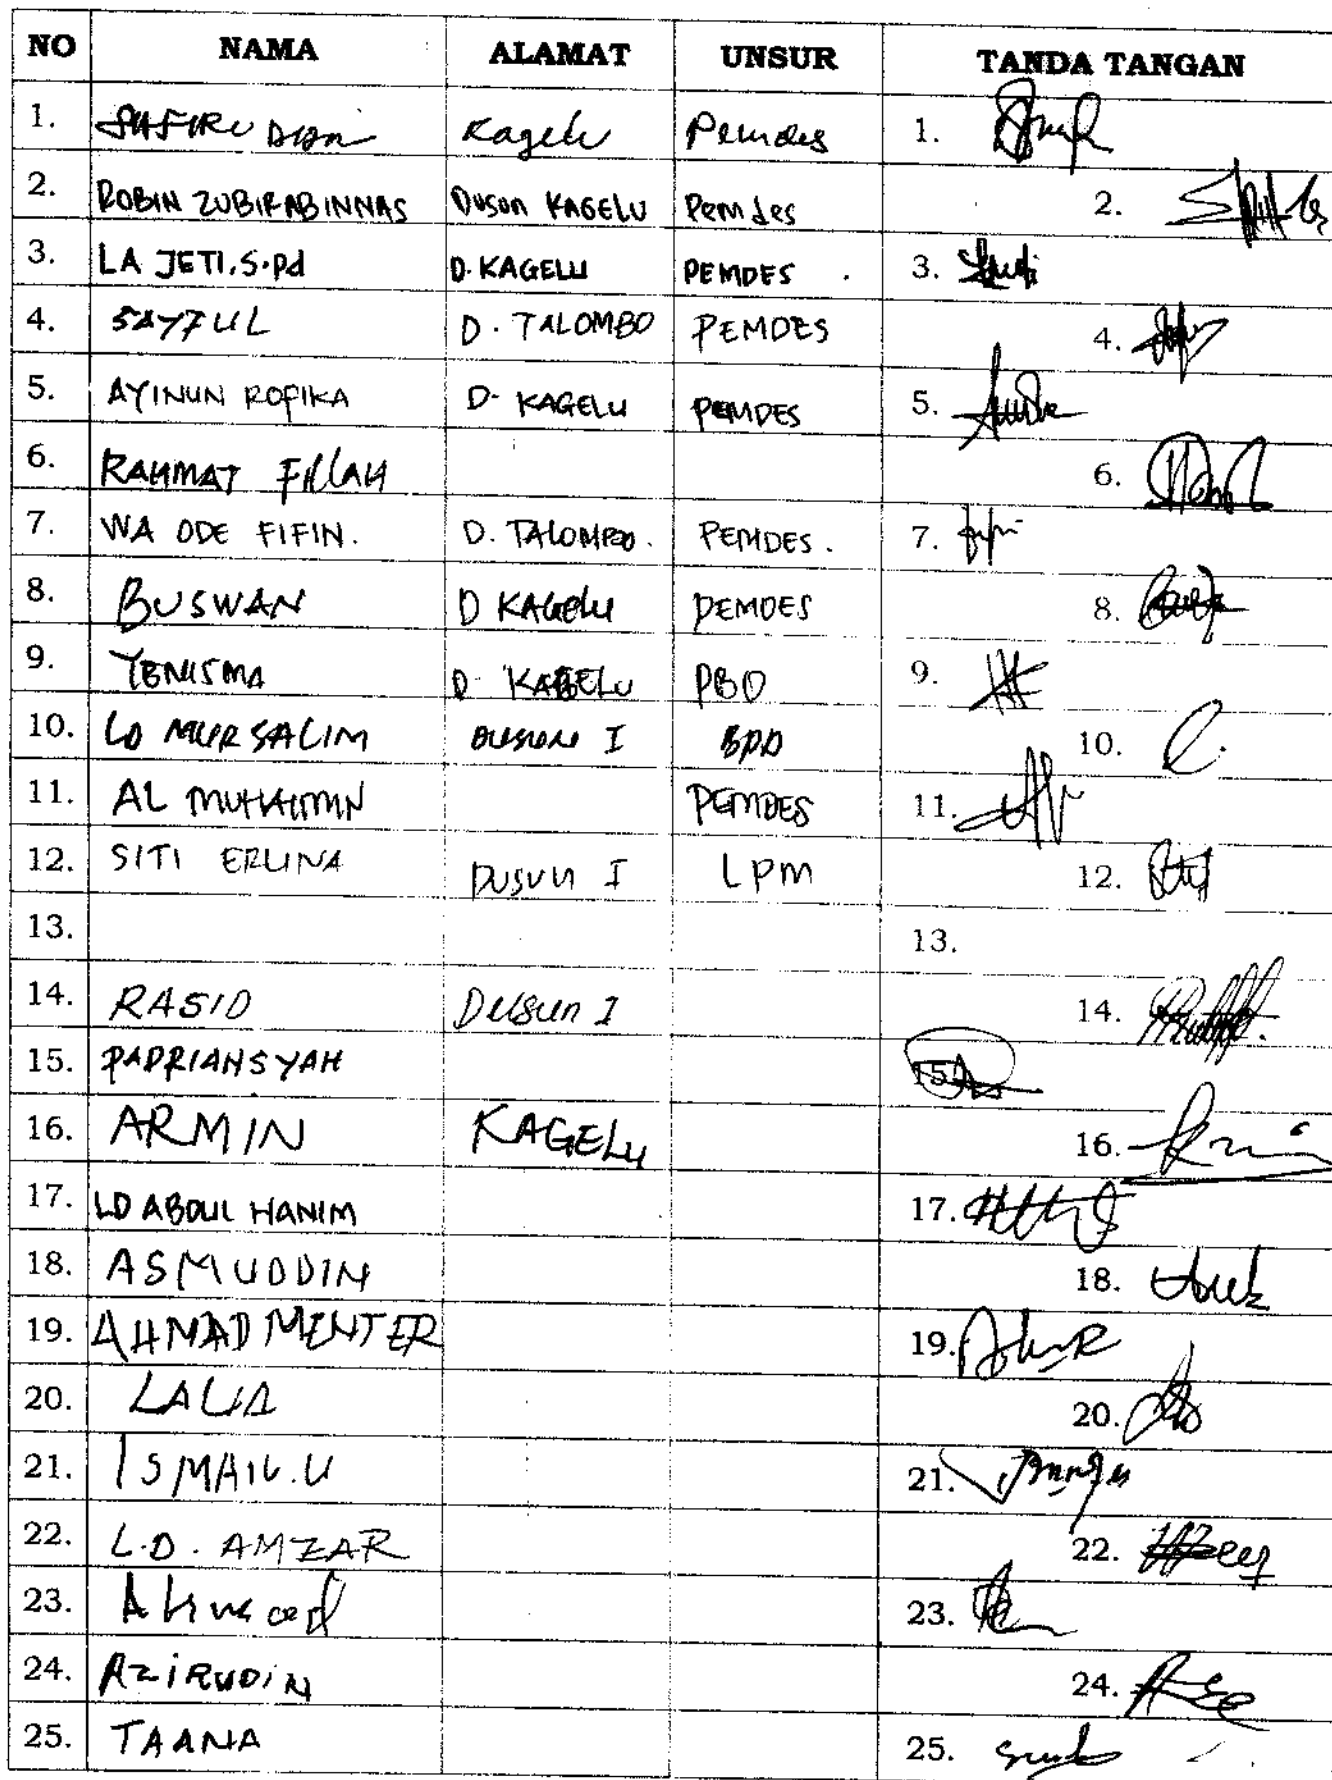 NO NAMA ALAMAT UNSUR TANDA TANGAN
1. Kagelu Pemdes 1.
2. ROBIN ZUBIRABINNAS Dusun KAGELU Pemdes 2.
3. LA JETI.S.Pd D. KAGELU PEMDES 3.
4. SAYFUL D. TALOMBO PEMDES 4.
5. AYINUN ROFIKA D- KAGELU PEMDES 5.
6. RAHMAT FILLAH 6.
7. WA ODE FIFIN. D. TALOMBO. PEMDES. 7.
8. BUSWAN D KAGELU PEMDES 8.
9. YENISMA D KAGELU 9.
10. LD MURSALIM DUSUN I BPD 10.
11. AL MUHAIMIN PEMDES 11.
12. SITI ERLINA DUSUN I LPM 12.
13. 13.
14. RASID Dusun I 14.
15. PADRIANSYAH 15.
16. ARMIN KAGELU 16.
17. LD ABDUL HANIM 17.
18. ASMUDDIN 18.
19. AHMAD MENTER 19.
20. 20.
21. ISMAIL.U 21.
22. L.D. AMZAR 22.
23. Ahmad 23.
24. AZIRUDIN 24.
25. TAANA 25.